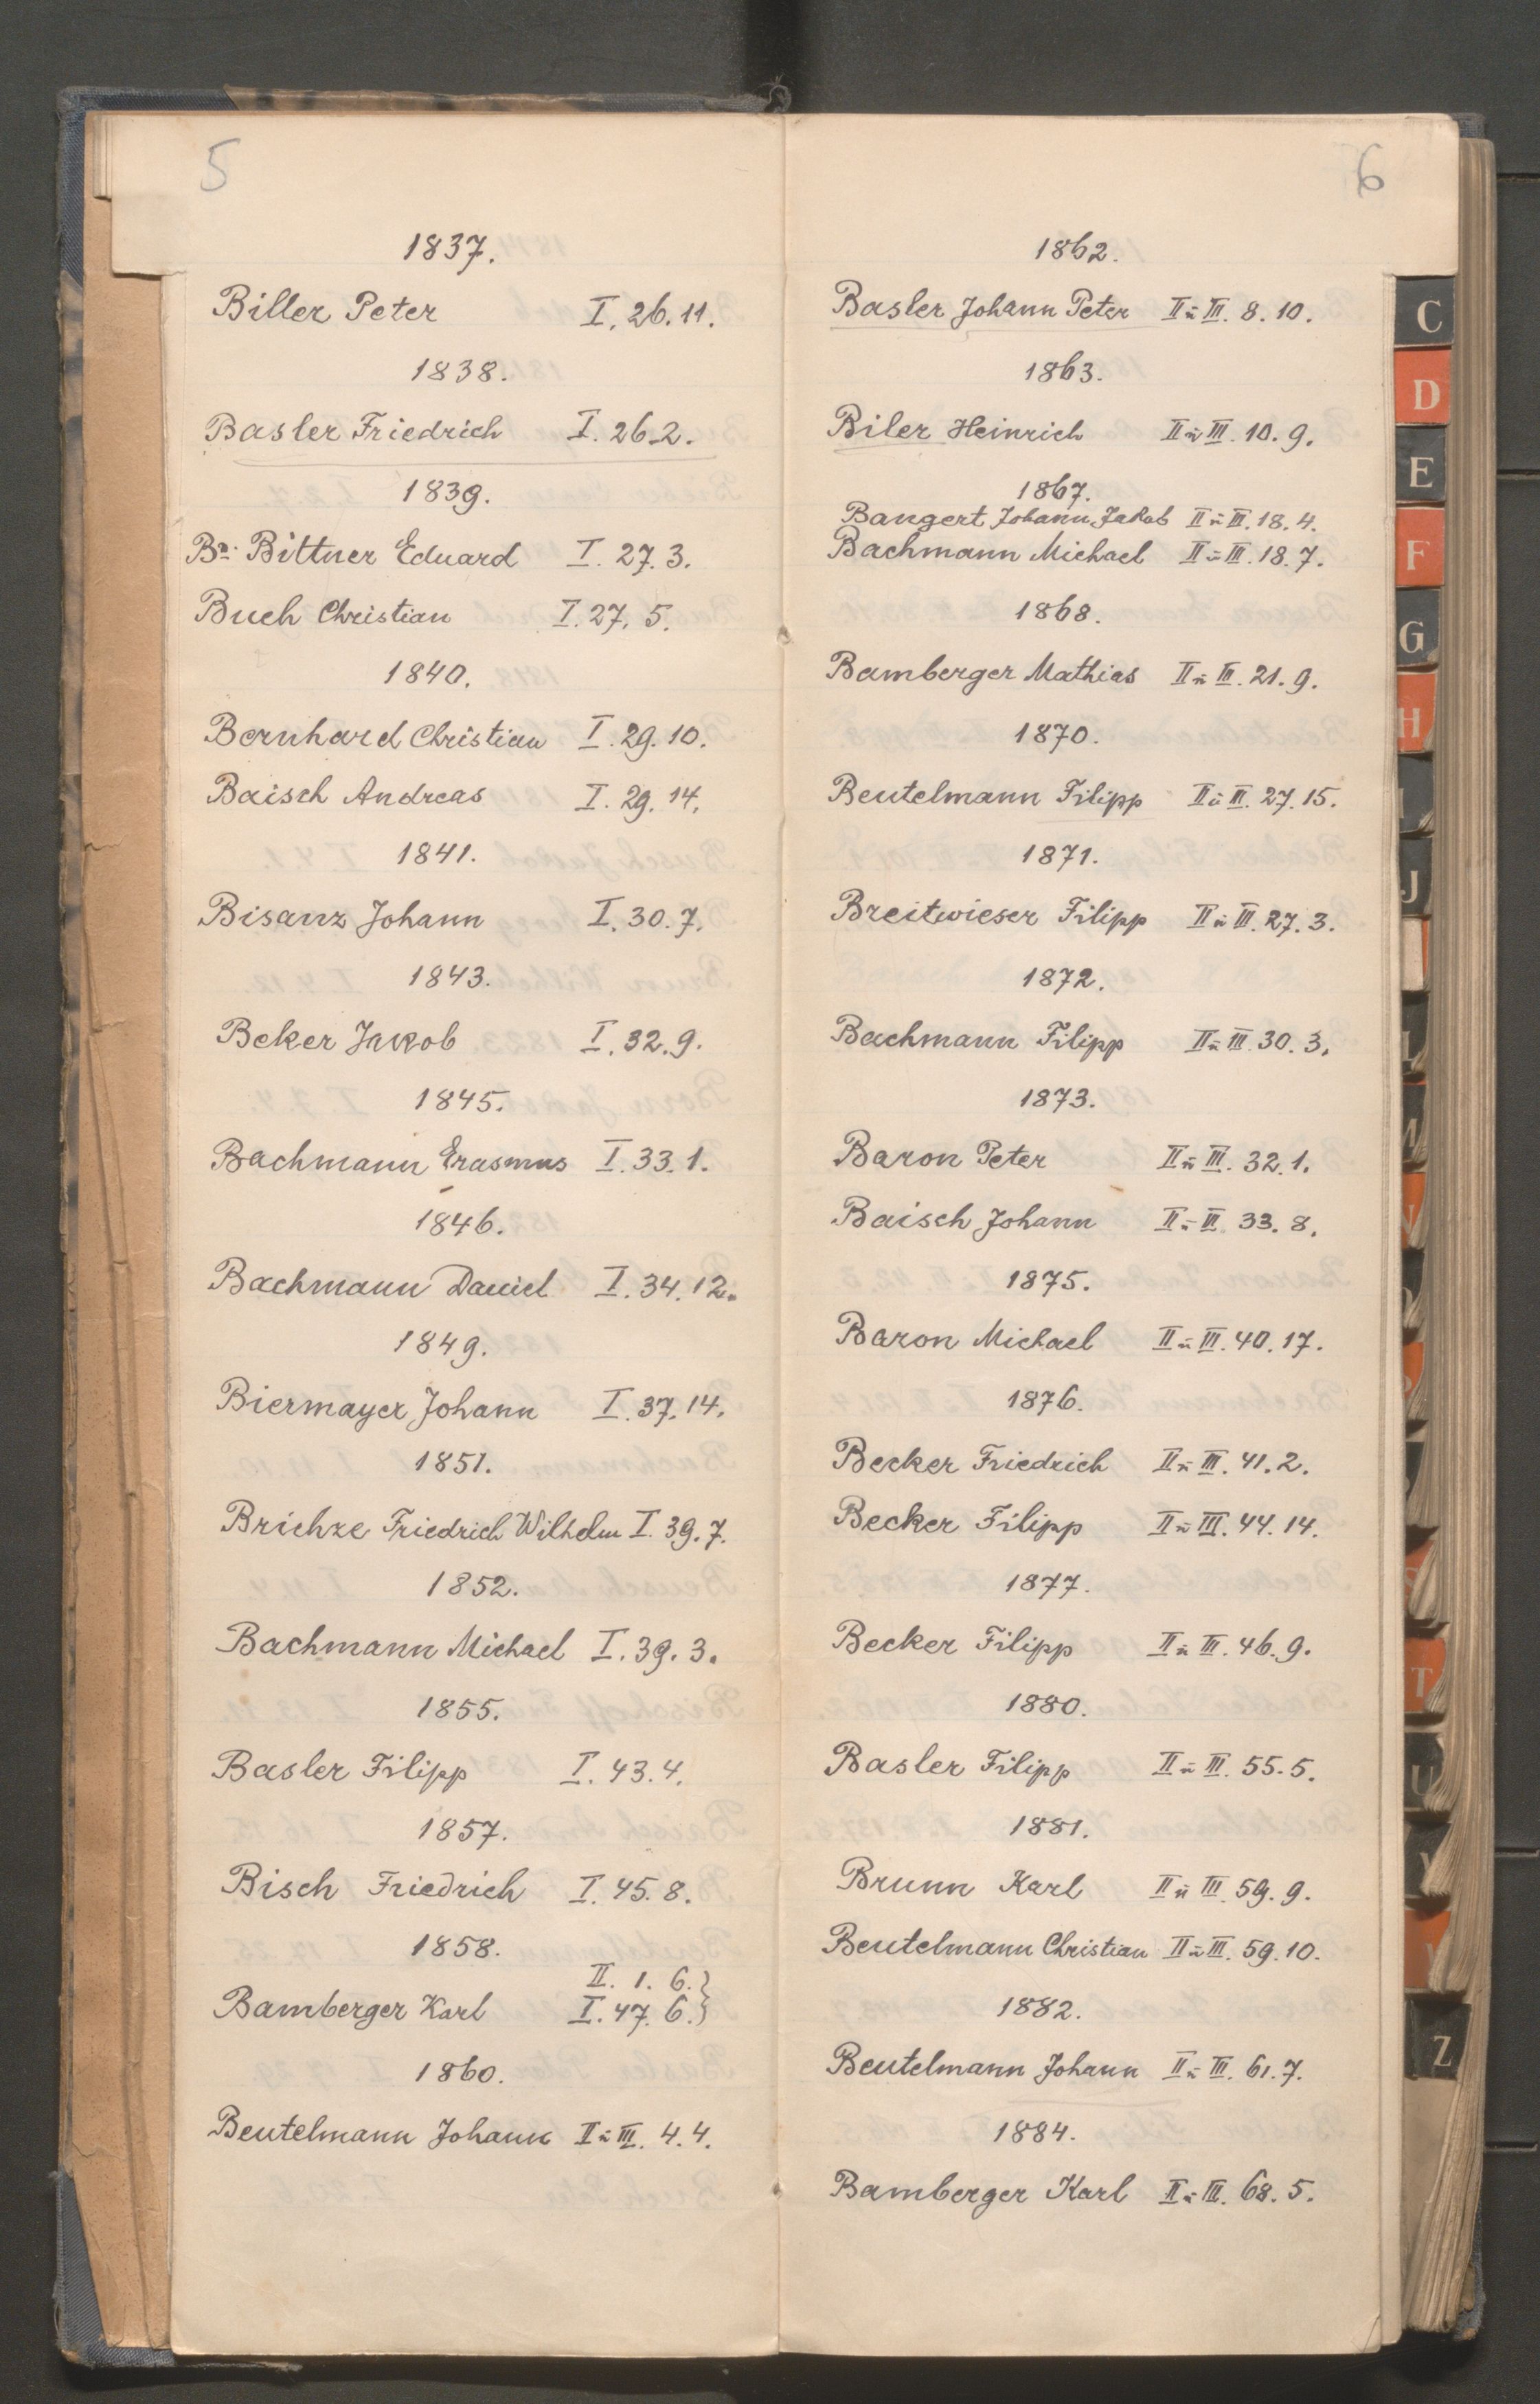 5
1837.
Biller Peter I. 26. 11.
1838.
Basler Friedrich I. 26.2.
1839.
Bittner Eduard I. 27. 3.
Buch Christian I. 27. 5.
1840.
Bernhard Christian I. 29. 10.
Baisch Andreas I. 29. 14.
1841.
Bisanz Johann I. 30. 7.
1843.
Beker Jakob I. 32. 9.
1845.
Bachmann Erasmus I. 33. 1.
1846.
Bachmann Daniel I. 34. 12.
1849.
Biermayer Johann I. 37. 14.
1851.
Brichze Friedrich Wilhelm I. 39. 7.
1852.
Bachmann Michael I. 39. 3.
1855.
Basler Filipp I. 43. 4.
1857.
Bisch Friedrich I. 45. 8.
1858.
II. 1. 6.}
Bamberger Karl I. 47. 6.}
1860.
Beutelmann Johann II ü III. 4. 4.
6
1862.
Basler Johann Peter II ü III. 8. 10.
1863.
Biler Heinrich II ü III. 10. 9.
1867.
Bangert Johann Jakob II ü III. 18. 4.
Bachmann Michael II ü III. 18. 7.
1868.
Bamberger Mathias II ü III. 21. 9.
1870.
Beutelmann Filipp II ü III. 27. 15.
1871.
Breitwieser Filipp II ü III. 27. 3.
1872.
Bachmann Filipp II ü III. 30. 3.
1873.
Baron Peter II ü III. 32. 1.
Baisch Johann II ü III. 33. 8.
1875.
Baron Michael II ü III. 40. 17.
1876.
Becker Friedrich II ü III. 41. 2.
Becker Filipp II ü III. 44. 14.
1877.
Becker Filipp II ü III. 46. 9.
1880.
Basler Filipp II ü III. 55. 5.
1881.
Brunn Karl II ü III. 59. 9.
Beutelmann Christian II ü III. 59. 10.
1882.
Beutelmann Johann II ü III. 61. 7.
1884.
Bamberger Karl II ü III. 68. 5.
C
D
E
F
G
H
J
T
U
Z